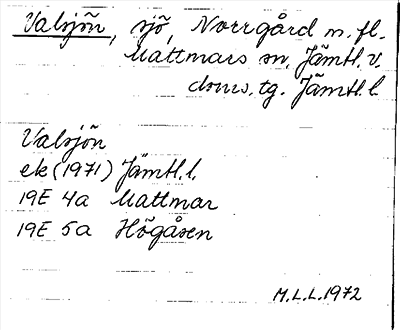 Valsjön, sjö, Norrgård m.fl.
Mattmars sn, Jämtl. v.
doms. tg. Jämtl. l.
Valsjön
ek (1971) Jämtl. l.
19E 4a Mattmar
19E 5a Högåsen
M.L.L. 1972